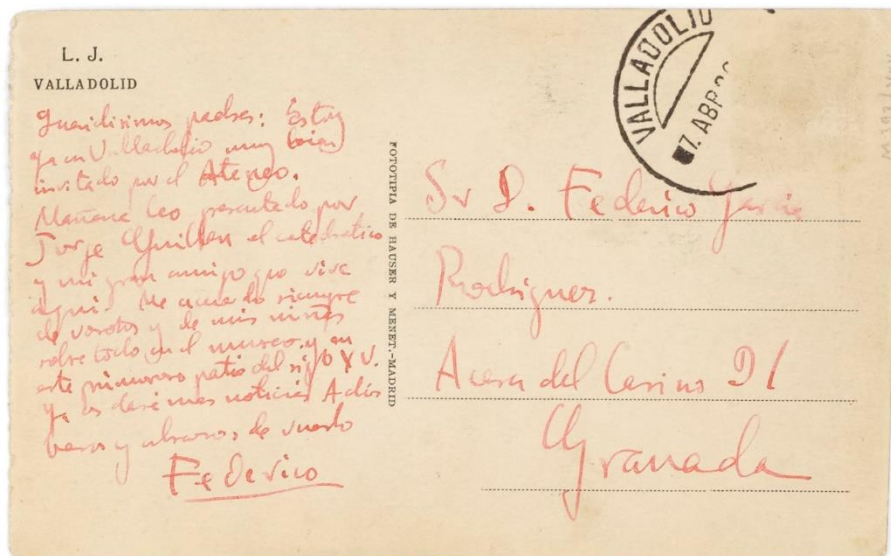 L. J.
VALLADOLID
Queridisimos padres: Estoy
ya en Valladolid muy bien
invitado por el Ateneo.
Mañana leo presentado por
Jorge Guillen el catedratico
y mi gran amigo que vive
aqui. Me acuerdo siempre
de vosotros y de mis niñas
sobre todo en el museo, y en
este primoroso patio del siglo XV.
Ya os daré mas noticias Adios
besos y abrazos de vuestro
Federico
FOTOTIPIA DE HAUSER Y MENET.-MADRID
VALLADOLID
7. ABR
Sr D. Federico Garcia
Rodriguez.
Acera del Casino 31
Granada